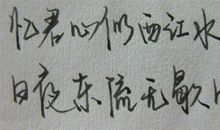 忆君心似西江水
日夜东流无歇